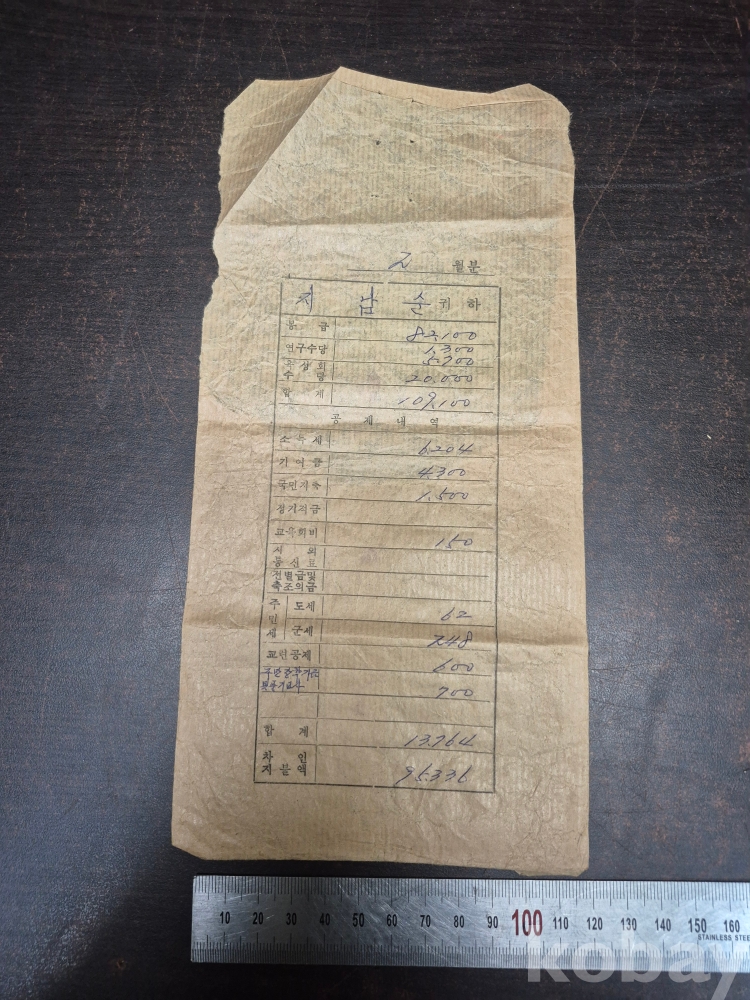 2 월분
지 남 순 귀하
봉 급 82,100
연구수당 1,300
5,700
수 당 20,000
합 계 109,100
공 제 내 역
소 득 세 6204
기 여 금 4,300
국민저축 1,500
정기적금
교육회비 150
시 외
통 신 료
전별금및
축조의금
주 민 세 도세 62
군세 248
교련공제 600
700
합 계 13,764
차 인
지 불 액 95336
10 20 30 40 50 60 70 80 90 100 110 120 130 140 150 160
STAINLESS STEE
kobay